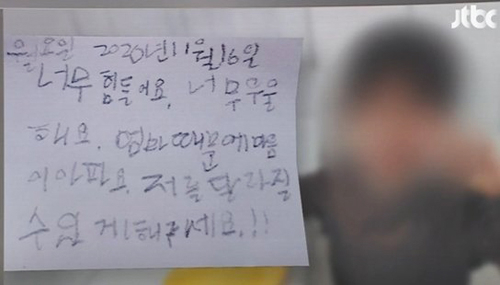 jtbc
월요일 2020년11월16일
너무 힘들어요, 너무우울
해요. 엄마때문에마음
이아파요. 저를달라질
수있게해주세요.!!